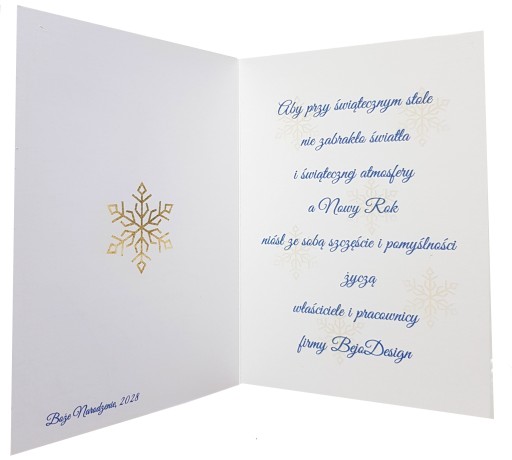 Boże Narodzenie, 2028
Aby przy świątecznym stole
nie zabrakło światła
i świątecznej atmosfery
a Nowy Rok
niósł ze sobą szczęście i pomyślności
życzą
właściciele i pracownicy
firmy BejoDesign